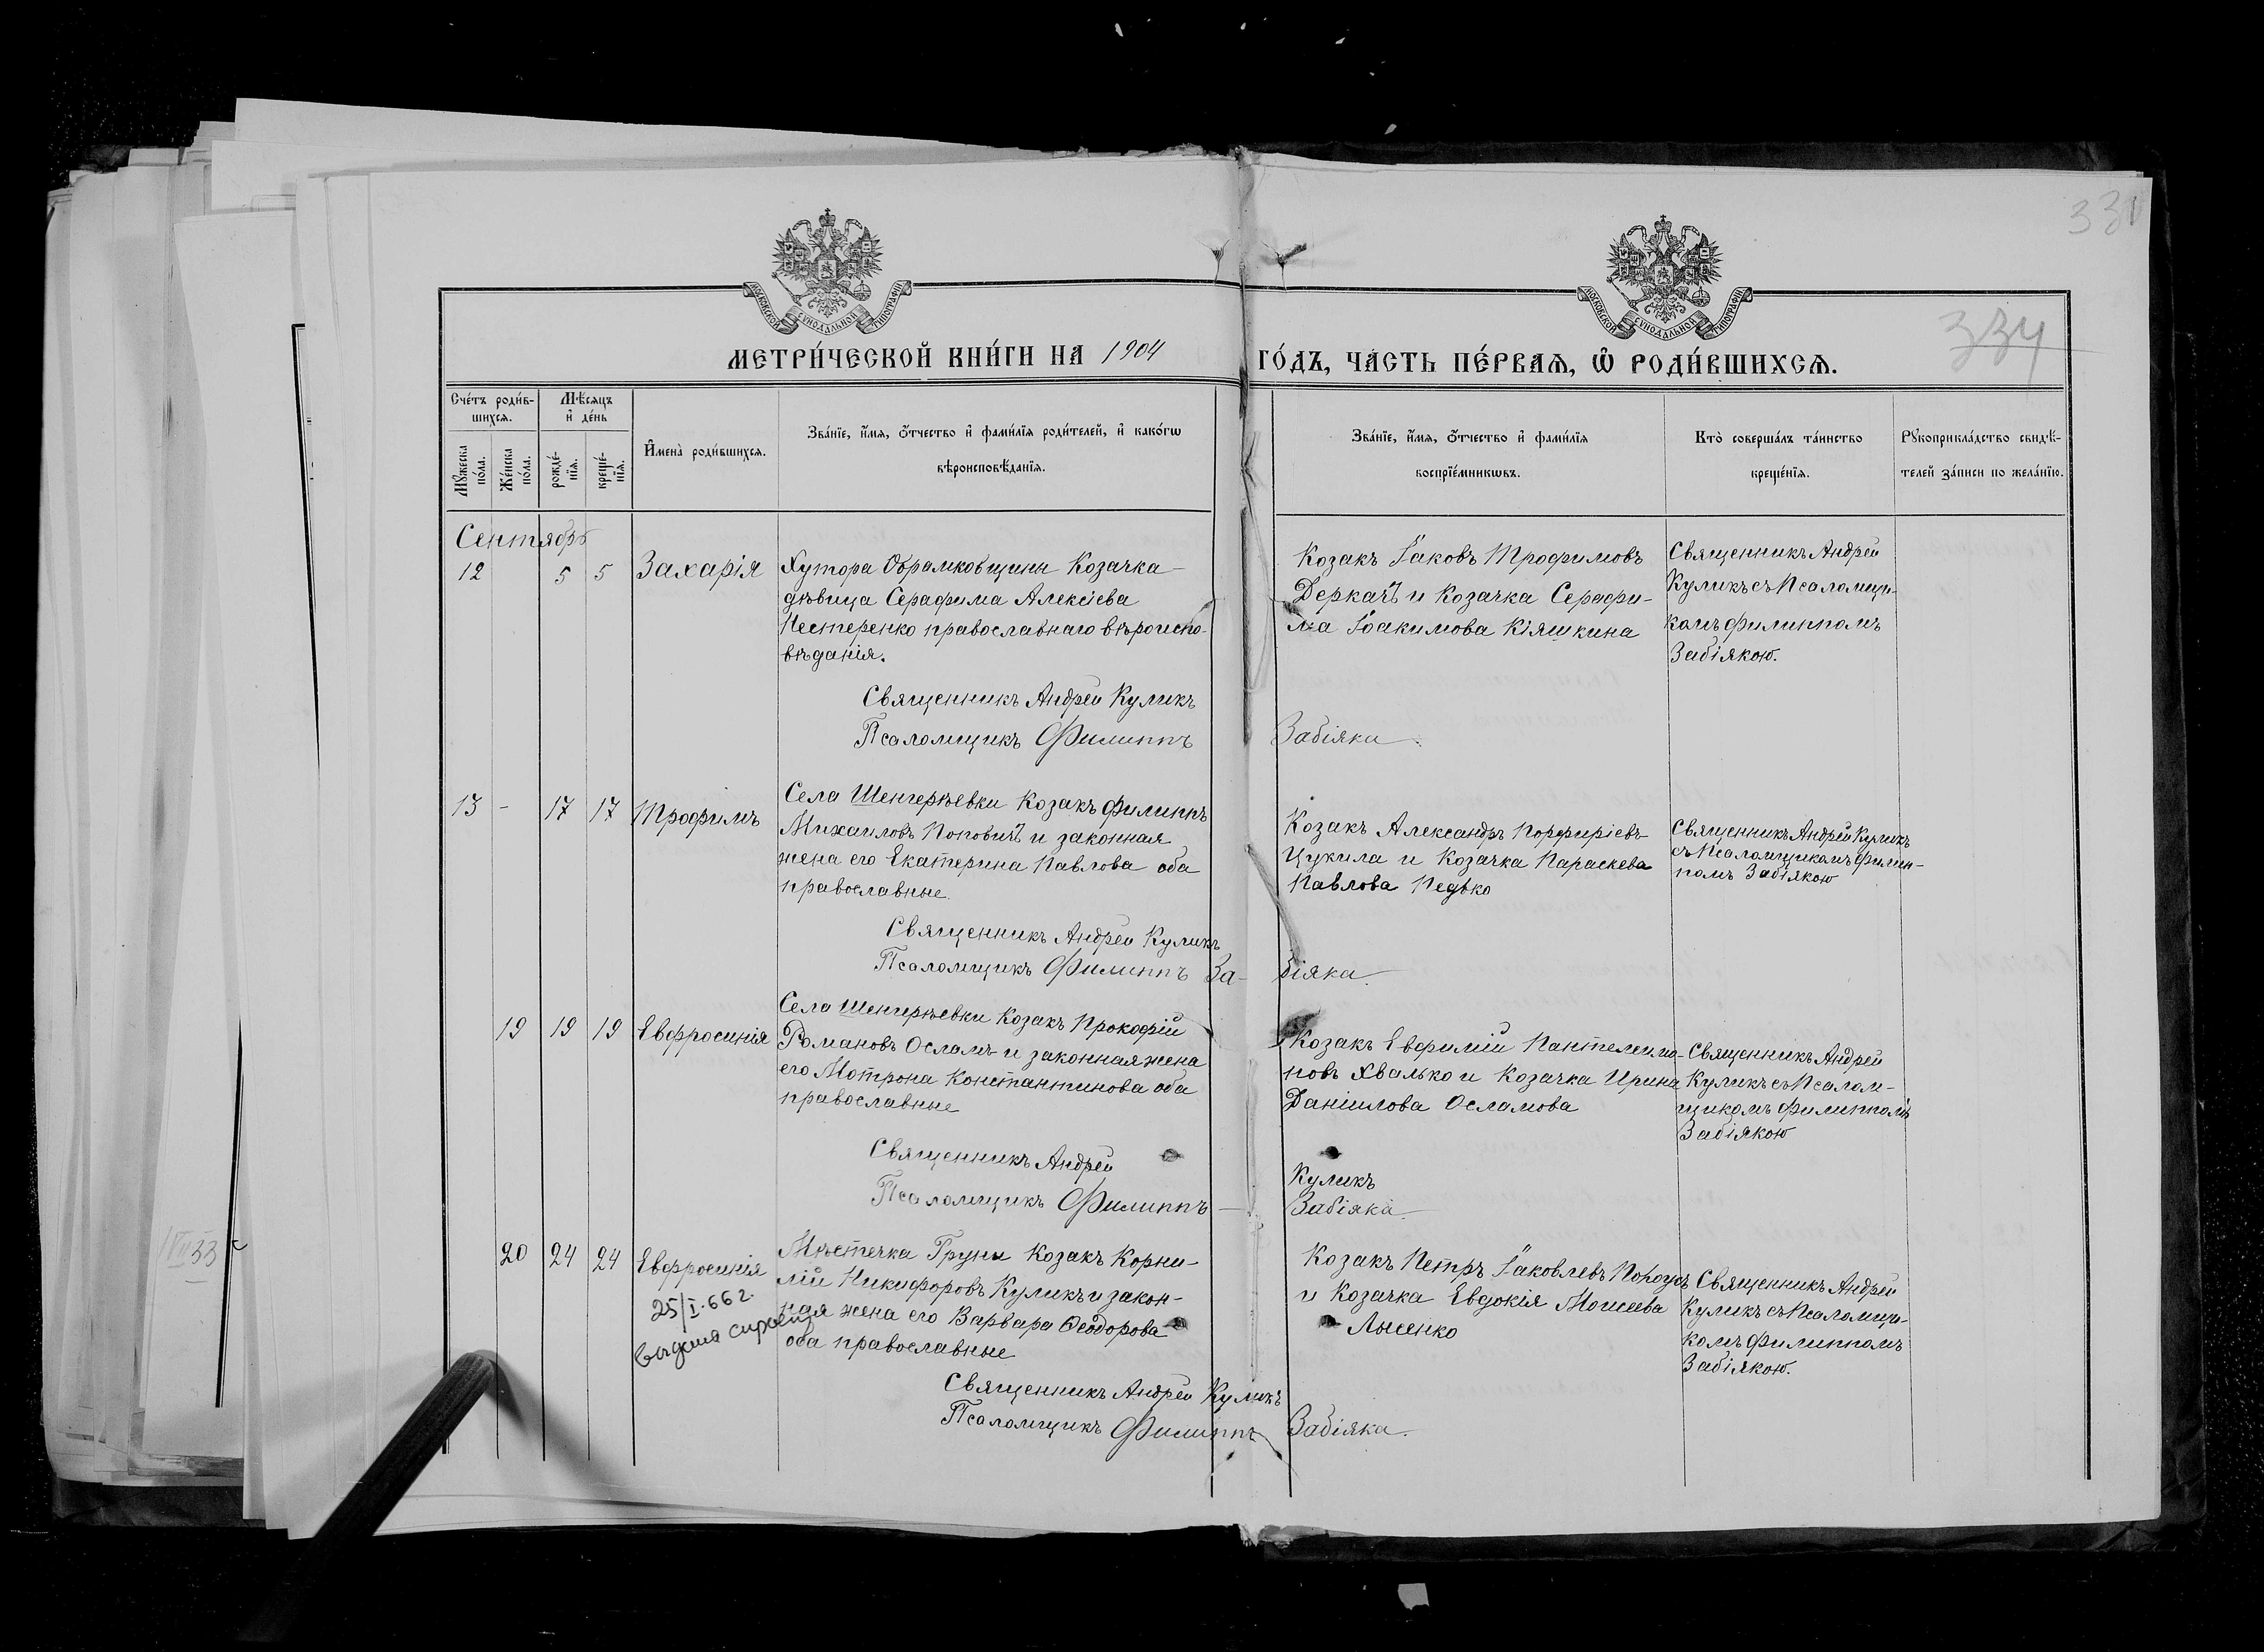 331
334
МОСКОВСКОЙ СѴНОДАЛЬНОЙ ТИПОГРАФІИ
МОСКОВСКОЙ СѴНОДАЛЬНОЙ ТИПОГРАФІИ
МЕТРИ́ЧЕСКОЙ КНИ́ГИ НА 1904 ГО́ДЪ, ЧА́СТЬ ПЕ́РВАѦ, Ѽ РОДИ́ВШИХСѦ.
Сче́тъ роди́в-
шихсѧ.
Мꙋжеска по́ла.
Же́нска по́ла.
Мѣ́сѧцъ
и҆ де́нь
рожде́-
нїѧ.
креще́-
нїѧ.
И҆мена̀ роди́вшихсѧ.
Зва́нїе, и҆́мѧ, ѻ҆́тчество и҆ фами́лїѧ роди́телей, и҆ како́гѡ
вѣроисповѣ́данїѧ.
Зва́нїе, и҆́мѧ, ѻ҆́тчество и҆ фами́лїѧ
воспрїе́мникѡвъ.
Кто̀ соверша́лъ та́инство
креще́нїѧ.
Рꙋкоприкла́дство свидѣ́-
телей за́писи по жела́нїю.
Сентябрь
12 5 5 Захарія
Хутора Обрамковщины Козачка
дѣвица Серафима Алексіева
Нестеренко православнаго вѣроиспо-
вѣданія.
Козакъ Іаковъ Трофимовъ
Деркачъ и Козачка Серафи-
ма Іоакимова Кіяшкина
Священникъ Андрей
Куликъ съ Псаломщи-
комъ Филиппомъ
Забіякою.
Священникъ Андрей Куликъ
Псаломщикъ Филиппъ Забіяка.
13 - 17 17 Трофимъ
Села Шенгерѣевки Козакъ Филиппъ
Михаиловъ Поповичъ и законная
жена его Екатерина Павлова оба
православные
Козакъ Александръ Порфиріевъ
Цукила и Козачка Параскева
Павлова Педько
Священникъ Андрей Куликъ
съ Псаломщикомъ Филип-
помъ Забіякою
Священникъ Андрей Куликъ
Псаломщикъ Филиппъ За- біяка.
19 19 19 Евфросинія
Села Шенгерѣевки Козакъ Прокофій
Романовъ Осламъ и законная жена
его Мотрона Константинова оба
православные
Козакъ Евфимій Пантелеимо-
новъ Хвалько и Козачка Ирина
Даніилова Осламова
Священникъ Андрей
Куликъ съ Псалом-
щикомъ Филиппомъ
Забіякою
Священникъ Андрей Куликъ
Псаломщикъ Филиппъ Забіяка.
20 24 24 Евфросинія
25/I.66 г.
Мѣстечка Груни Козакъ Корни-
лій Никифоровъ Куликъ и закон-
ная жена его Варвара Ѳеодорова
оба православные
Козакъ Петръ Іаковлевъ
и Козачка Евдокія Моисеева
Лысенко
Священникъ Андрей
Куликъ съ Псаломщи-
комъ Филиппомъ
Забіякою.
Священникъ Андрей Куликъ
Псаломщикъ Филиппъ Забіяка.